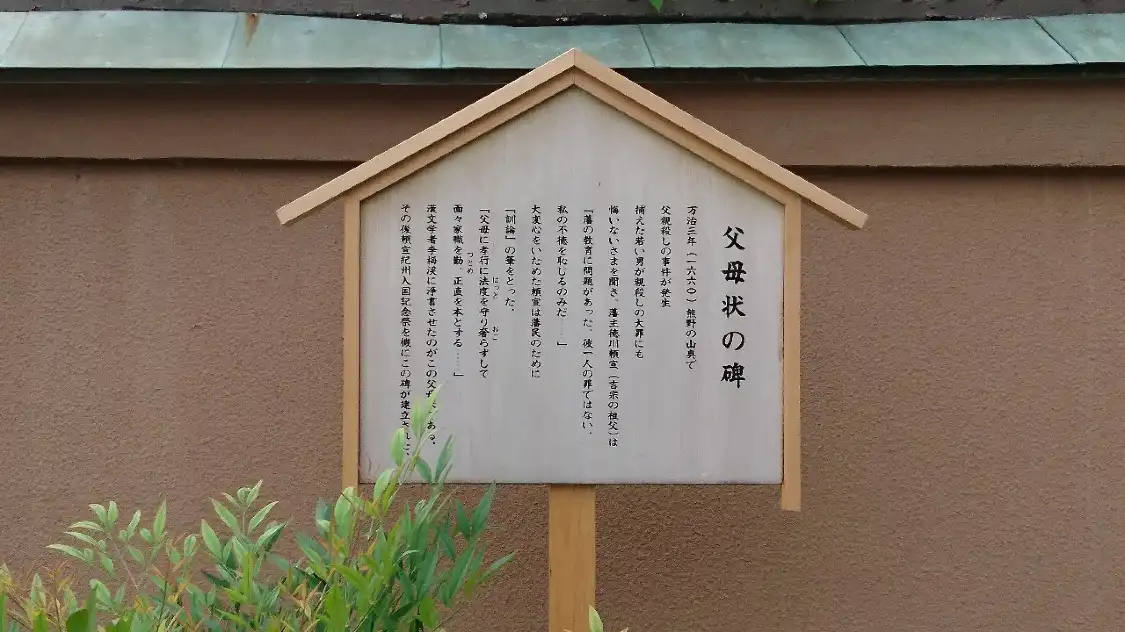 父母状の碑
万治三年(一六六〇)熊野の山奥で
父親殺しの事件が発生
捕えた若い男が親殺しの大罪にも
悔いないさまを聞き、藩主徳川頼宣(吉宗の祖父)は
『藩の教育に問題があった、彼一人の罪ではない、
私の不徳を恥じるのみだ……」
大変心をいためた頼宣は藩民のために
「訓諭」の筆をとった、
「父母に孝行に法度を守り奢らずして
はっと
おこ
面々家職を勤、正直を本とする……」
つとめ
漢文学者李梅渓に浄書させたのがこの父ある。
その後頼宣紀州入国記念祭を機にこの碑が建立された、